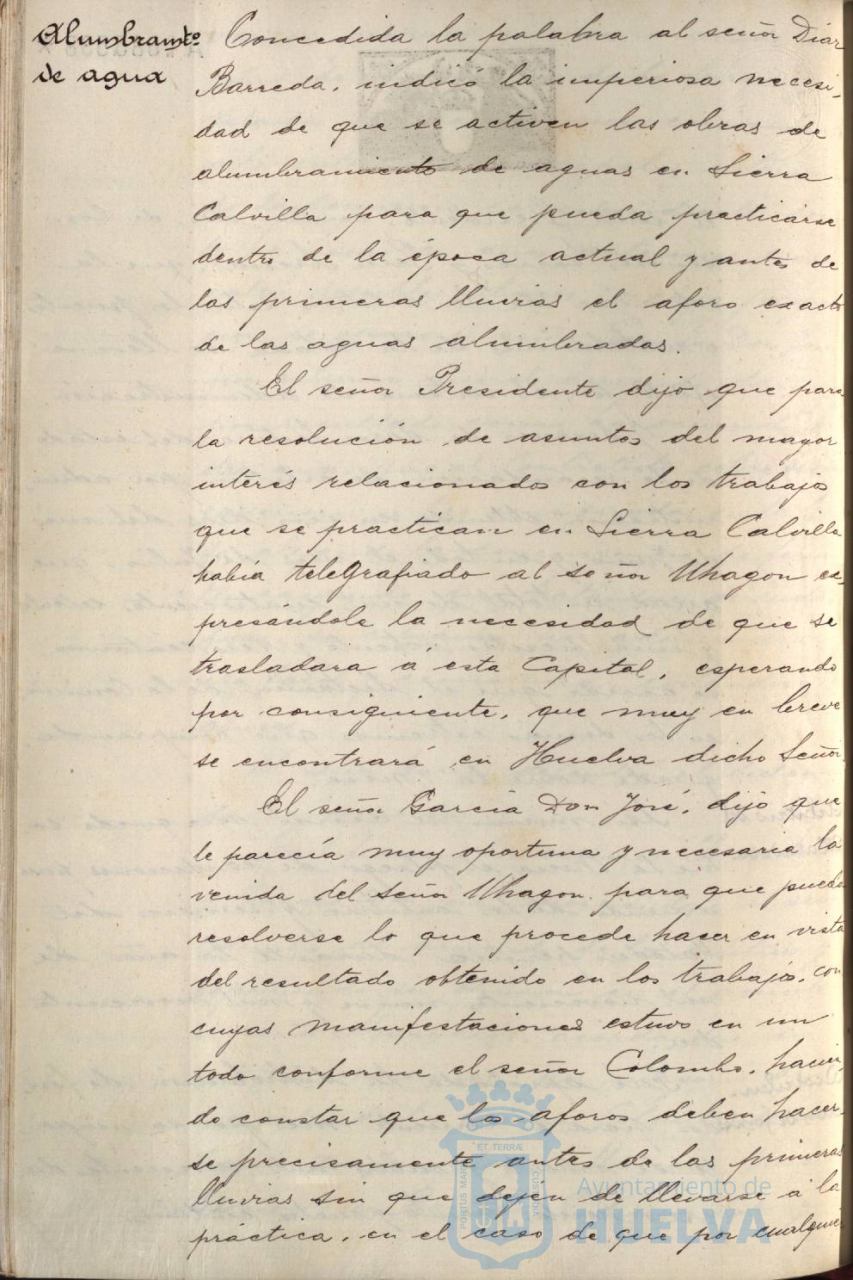 Alumbramto
de agua
Concedida la palabra al señor Díaz
Barreda, indicó la imperiosa necesi-
dad de que se activen las obras de
alumbramiento de aguas en Sierra
Calvilla para que pueda practicarse
dentro de la época actual y antes de
las primeras lluvias el aforo exacto
de las aguas alumbradas.
El señor Presidente dijo que para
la resolución de asuntos del mayor
interés relacionados con los trabajos
que se practican en Sierra Calvilla
había telegrafiado al señor Uhagon ex-
presándole la necesidad de que se
trasladara á esta Capital, esperando
por consiguiente, que muy en breve
se encontrará en Huelva dicho Señor.
El señor García Don José, dijo que
le parecía muy oportuna y necesaria la
venida del señor Uhagon para que pueda
resolverse lo que procede hacer en vista
del resultado obtenido en los trabajos, con
cuyas manifestaciones estuvo en un
todo conforme el señor Colombo, hacien-
do constar que los aforos deben hacer-
se precisamente antes de las primeras
lluvias sin que dejen de llevarse a la
práctica, en el caso de que por cualquier
PORTUS MARIS
ET TERRAE
CUSTODIA
Ayuntamiento de
HUELVA